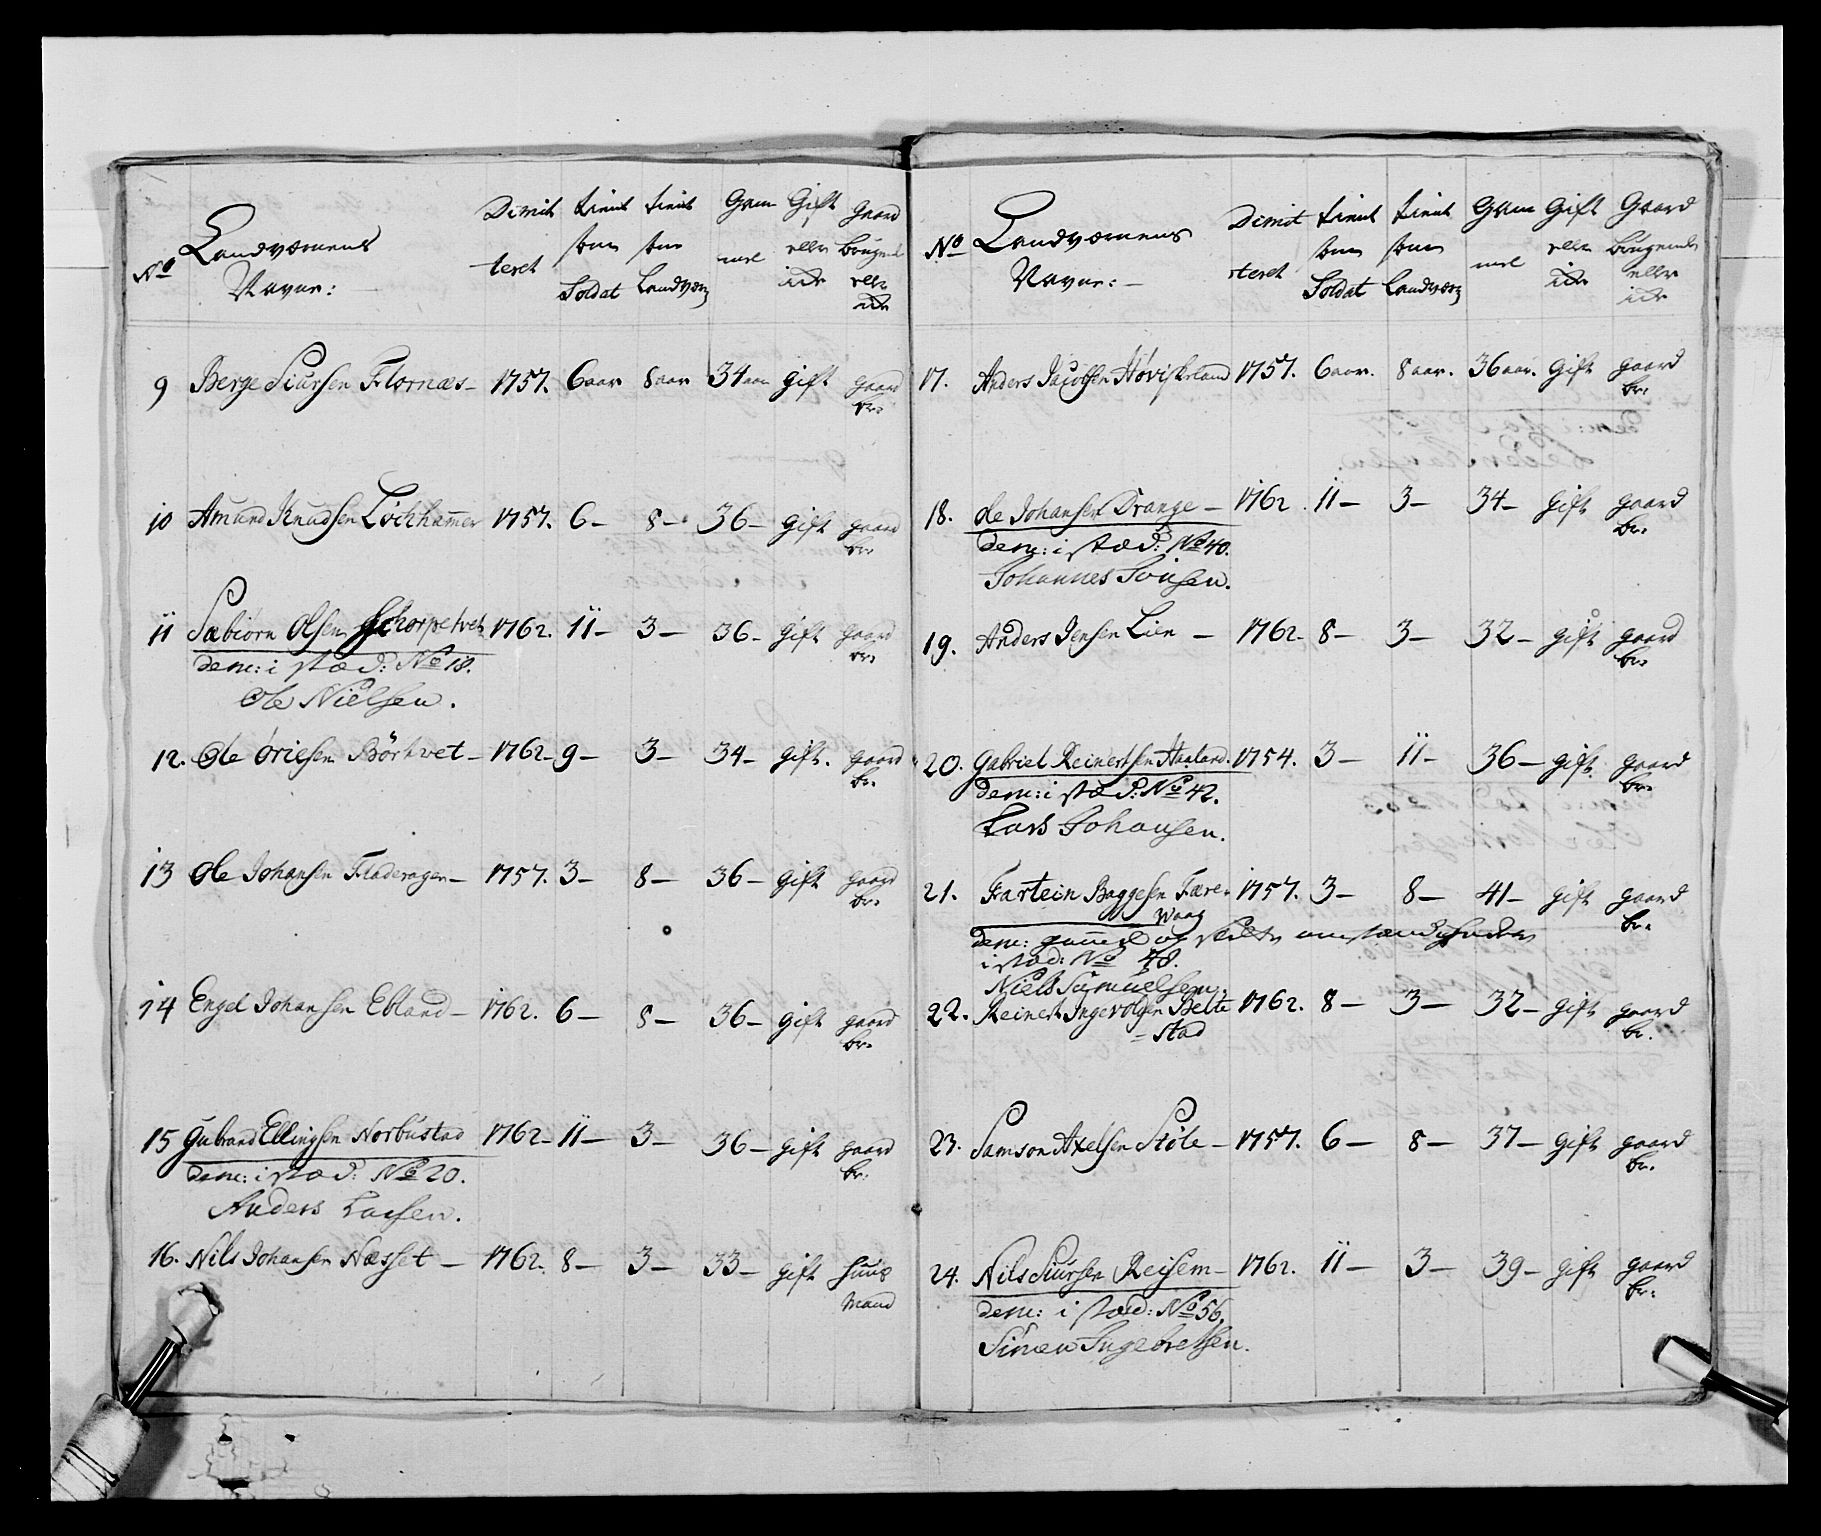 No Landværnens Navne:— Dimitteret tient som Soldat tient som Landværn Gammel Gift eller icke Gaard brugende eller icke
9 Berge Siursen Flornæs— 1757. 6 aar 8 aar 34 aar gift gaard br:
10 Amund Knudsen Lochhamer 1757. 6— 8— 36— gift gaard br:
11 Sæbiørn Olsen Schorpetvet 1762. 11— 3— 36— gift gaard br:
dem: i stæd: No 18.
Ole Nielsen.
12. Ole Øriesen Børtvet— 1762— 9— 3— 34— gift. gaard br:
13 Ole Johansen Fladeragen— 1757. 3— 8— 36— gift gaard br:
14 Engel Johansen Ebland— 1762. 6— 8— 36— gift gaard br:
15 Gubrand Ellingsen Norbustad 1762— 11— 3— 36— gift gaard br:
dem: i stæd: No 20.
Anders Larsen.
16. Nils Johansen Næsset— 1762. 8— 3— 33— gift huus mand
No Landværnens Navne:— Dimitteret tient som Soldat tient som Landværn Gammel Gift eller icke Gaard brugende eller icke
17. Anders Jacobsen Høviskeland 1757. 6 aar. 8 aar. 36 aar. gift gaard br:
18. Ole Johansen Drange— 1762. 11— 3— 34— gift gaard br:
dem: i stæd: No 40.
Johannes Tønsen.
19. Anders Jensen Lien— 1762— 8— 3— 32— gift gaard br:
20. Gabriel Reinertsen Haaland. 1754. 3— 11— 36— gift gaard br:
dem: i stæd: No 42.
Lars Johansen.
21. Fartein Baggesen Fære= 1757. 3— 8— 41— gift gaard br:
waag
dem: gammel og slette omstændigheder
i stæd: No 48.
Niels Samuelsen.
22. Reinert Ingevolsen Belte 1762. 8— 3— 32— gift gaard br.
=stad
23. Samson Axelsen Støle— 1757. 6— 8— 37— gift gaard br.
24. Nils Siursen Reisem— 1762. 11— 3— 39— gift gaard br:
dem: i stæd: No 56,
Simen Ingebretsen.